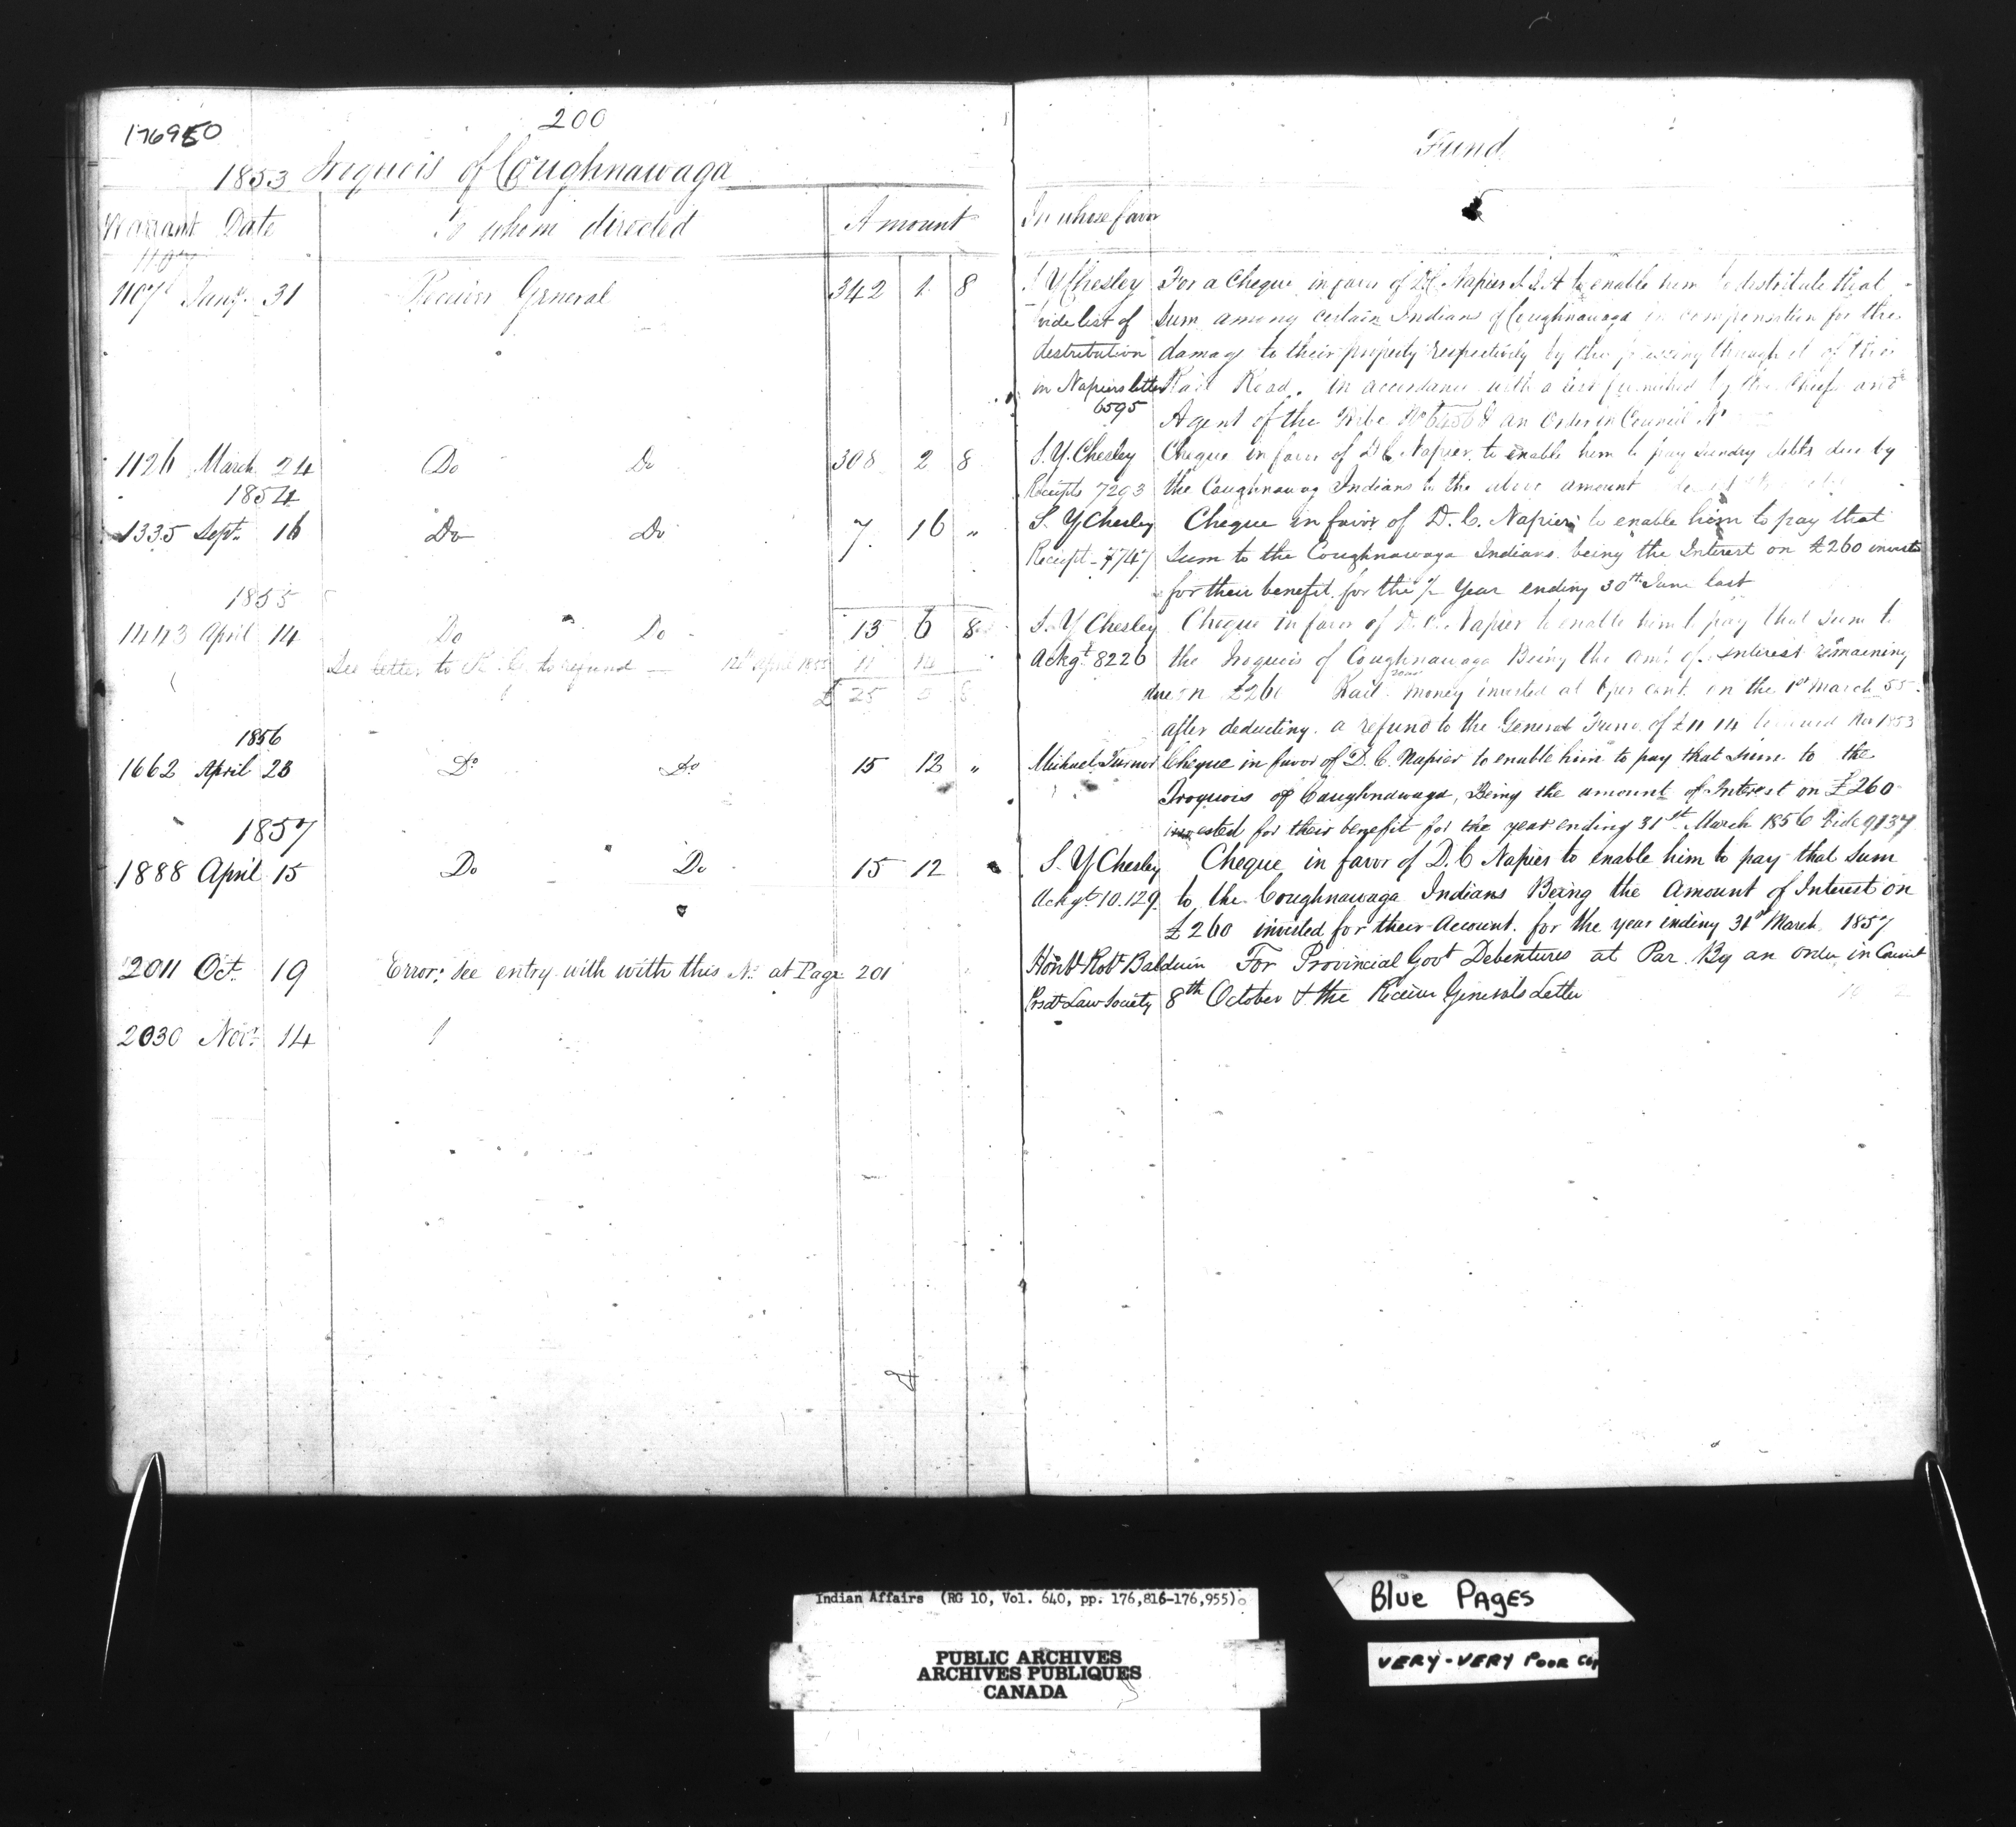 176950
200
1853 Iroquois of Coughnawaga
Fund
Warrant Date To whom directed Amount
In whose favor
1107 Jany 31 Receiver General 342 1 8
S. Y Chesley For a Cheque in favor of D C Napier S I A to enable him to distribute that
vide list of Sum among certain Indians of Coughnawaga in compensation for the
destribution damage to their property respectively by the passing through it of the
in Napiers letter Rail Road. in accordance with a list furnished by the Chiefs and
6595 Agent of the Tribe No 6456 & an Order in Council
1126 March 24 Do Do 308 2 8
S. Y. Chesley Cheque in favor of D C Napier to enable him to pay sundry debts due by
Receipts 7293 the Caughnawag Indians to the above amount
1854
1335 Sept. 16 Do Do 7. 16 "
S. Y Chesley Cheque in favor of D. C. Napier to enable him to pay that
Receipt - 7747 Sum to the Coughnawaga Indians being the Interest on £260 invest
for their benefit for the ½ Year ending 30th June last
1855
1443 April 14 Do Do 13 6 8
S. Y Chesley Cheque in favor of D. C. Napier to enable him to pay that sum to
See letter to R. G. to refund 12th April 1855 11 14
Ackgt 8226 the Iroquois of Coughnawaga Being the amt of Interest remaining
£ 25 0 8
due on £260 Rail road money invested at 6 per cent. on the 1st March 55.
after deducting a refund to the General Fund of £11 14 1853
1856
1662 April 23 Do Do 15 12 "
Michael Turnor Cheque in favor of D. C. Napier to enable him to pay that sum to the
Iroquois of Caughnawaga, Being the amount of Interest on £260
invested for their benefit for the year ending 31st March 1856 Vide 9137
1857
1888 April 15 Do Do 15 12
S. Y Chesley Cheque in favor of D. C Napier to enable him to pay that Sum
Ackgt 10.129. to the Coughnawaga Indians Being the Amount of Interest on
£260 invested for their Account. for the year ending 31st March 1857
2011 Oct. 19 Error: See entry with with this No at Page 201
Honbl Robt Baldwin For Provincial Govt Debentures at Par. By an order in Council
Presdt Law Society 8th October & the Receiver Generals Letter
2030 Novr 14
Indian Affairs (RG 10, Vol. 640, pp. 176,816-176,955).
PUBLIC ARCHIVES
ARCHIVES PUBLIQUES
CANADA
Blue Pages
VERY-VERY POOR COP